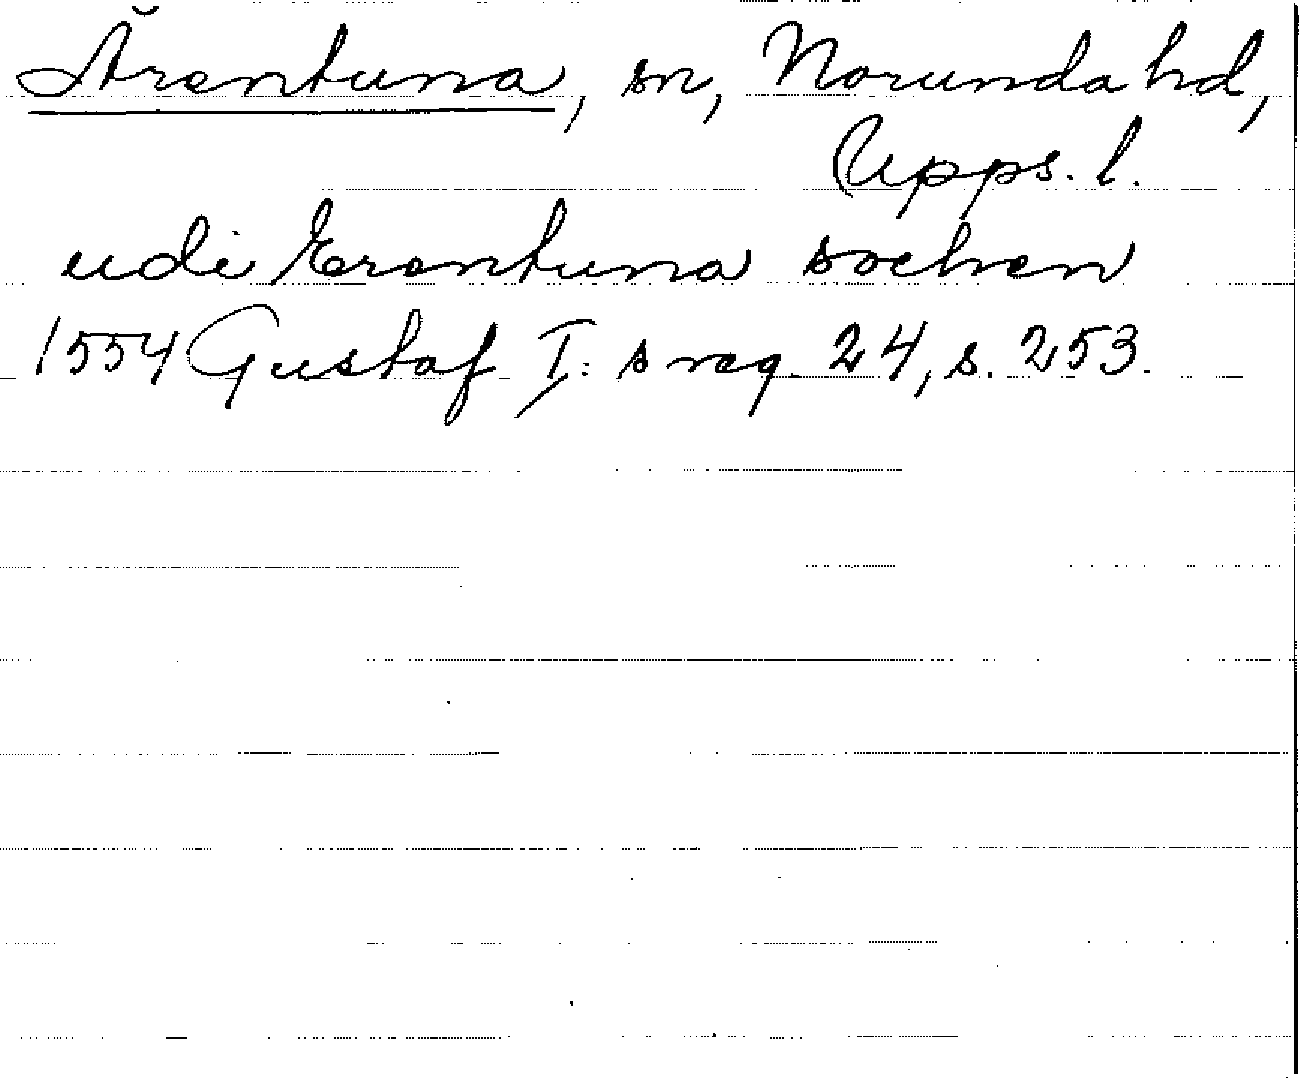 Ärentuna, sn, Norunda hd,
Upps. l.
udi Erentuna sochen
1554 Gustaf I: s reg. 24, s. 253.